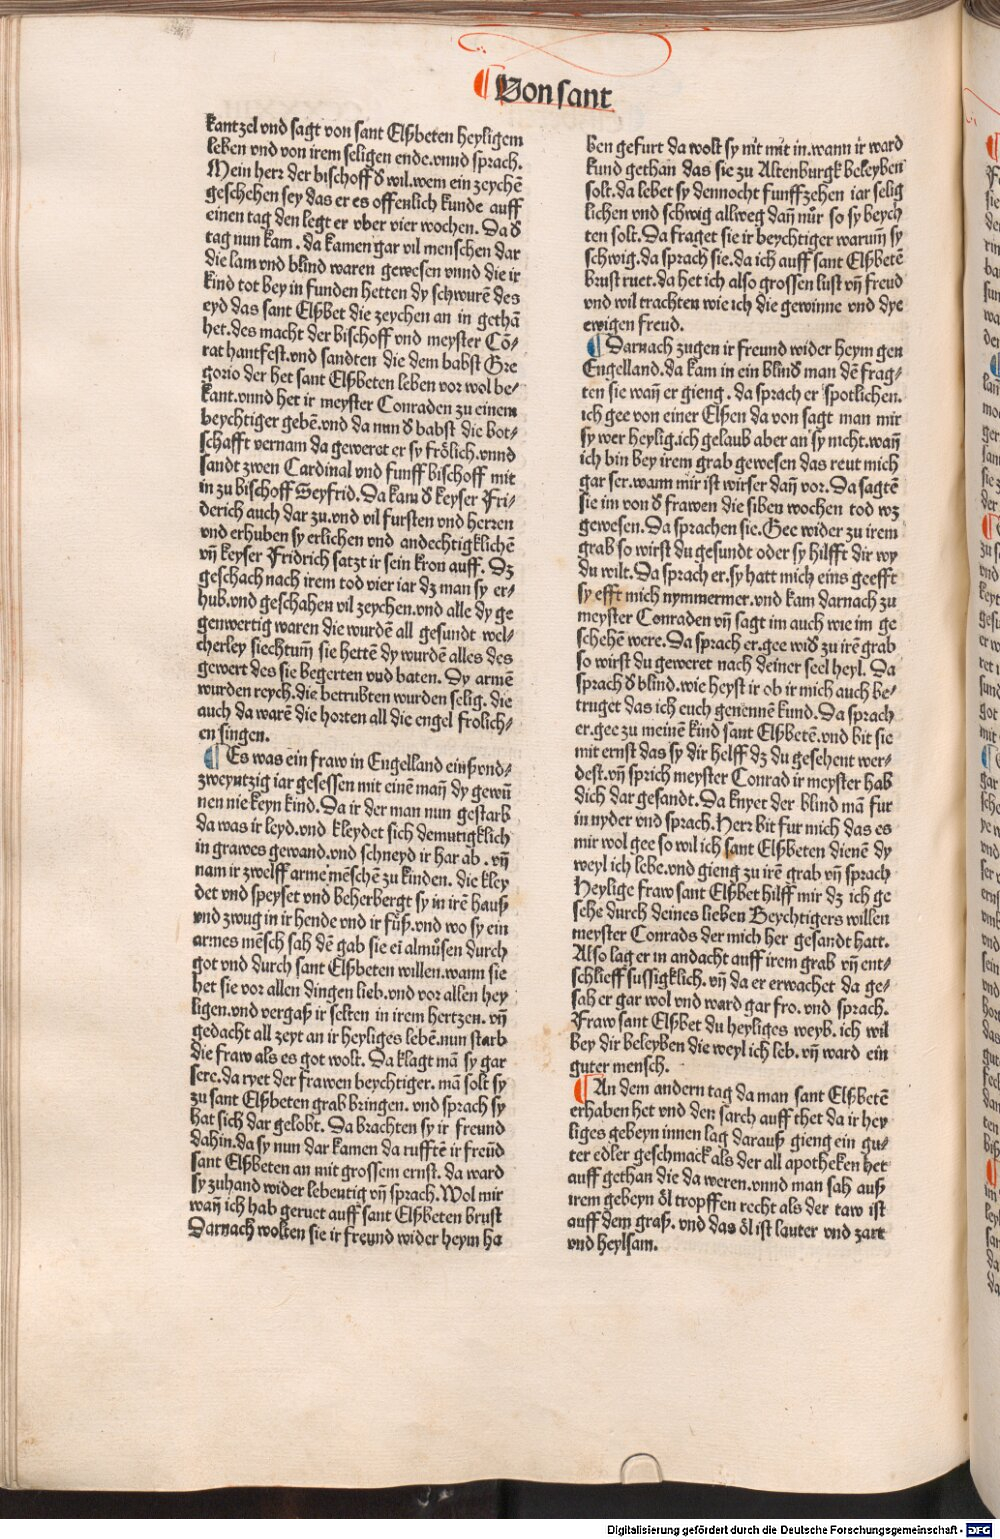 ¶ Von sant
kantzel vnd sagt von sant Elßbeten heyligem
leben vnd von irem seligen ende.vnnd sprach.
Mein herz der bischoff ð wil.wem ein zeychẽ
geschehen sey das er es offenlich kunde auff
einen tag den legt er vber vier wochen. Da ð
tag nun kam . da kamen gar vil menschen dar
die lam vnd blind waren gewesen vnnd die ir
kind tot bey in funden hetten dy schwurẽ des
eyd das sant Elßbet die zeychen an in gethã
het.des macht der bischoff vnd meyster Cõ⸗
rat hantfest.vnd sandten die dem babst Gre
gorio der het sant Elßbeten leben vor wol be⸗
kant.vnnd het ir meyster Conraden zu einem
beychtiger gebẽ.vnd da nun ð babst die bot⸗
schafft vernam da geweret er sy frölich.vnnd
sandt zwen Cardinal vnd funff bischoff mit
in zu bischoff Seyfrid. Da kam ð keyser Fri⸗
derich auch dar zu.vnd vil fursten vnd herzen
vnd erhuben sy erlichen vnd andechtigklichẽ
vñ keyser Fridrich satzt ir sein kron auff. Dz
geschach nach irem tod vier iar dz man sy er⸗
hub.vnd geschahen vil zeychen.vnd alle dy ge
genwertig waren die wurdẽ all gesundt wel⸗
cherley siechtum̃ sie hettẽ dy wurdẽ alles des
gewert des sie begerten vnd baten. Dy armẽ
wurden reych.die betrubten wurden selig. die
auch da warẽ die horten all die engel frolich⸗
en singen.
¶ Es was ein fraw in Engelland einßvnd⸗
zweyntzig iar gesessen mit einẽ mañ dy gewũ
nen nie keyn kind. Da ir der man nun gestarb
da was ir leyd.vnd kleydet sich demutigklich
in grawes gewand.vnd schneyd ir har ab . vñ
nam ir zwelff arme mẽschẽ zu kinden. die kley
det vnd speyset vnd beherbergt sy in irẽ hauß
vnd zwug in ir hende vnd ir füß.vnd wo sy ein
armes mẽsch sah dẽ gab sie ei almüsen durch
got vnd durch sant Elßbeten willen.wann sie
het sie vor allen dingen lieb.vnd vor allen hey
ligen.vnd vergaß ir selten in irem hertzen. vñ
gedacht all zeyt an ir heyliges lebẽ.nun starb
die fraw als es got wolt. Da klagt mã sy gar
sere.da ryet der frawen beychtiger. mã solt sy
zu sant Elßbeten grab bringen. vnd sprach sy
hat sich dar gelobt. Da brachten sy ir freund
dahin.da sy nun dar kamen da rufftẽ ir freũd
sant Elßbeten an mit grossem ernst. da ward
sy zuhand wider lebeutig vñ sprach. Wol mir
wañ ich hab geruet auff sant Elßbeten brust
Darnach wolten sie ir freund wider heym ha
ben gefurt da wolt sy nit mit in.wann ir ward
kund gethan das sie zu Altenburgk beleyben
solt.da lebet sy dennocht funffzehen iar selig
lichen vnd schwig allweg dañ nůr so sy beych
ten solt. Da fraget sie ir beychtiger warum̃ sy
schwig.da sprach sie.da ich auff sant Elßbetẽ
brust ruet.da het ich also grossen lust vñ freud
vnd wil trachten wie ich die gewinne vnd dye
ewigen freud.
¶ Darnach zugen ir freund wider heym gen
Engelland.da kam in ein blind man dẽ frag⸗
ten sie wañ er gieng . da sprach er spotlichen.
ich gee von einer Elßen da von sagt man mir
sy wer heylig.ich gelaub aber an sy nicht.wañ
ich bin bey irem grab gewesen das reut mich
gar ser.wann mir ist wirser dañ vor. Da sagtẽ
sie im von ð frawen die siben wochen tod wz
gewesen. Da sprachen sie. Gee wider zu irem
grab so wirst du gesundt oder sy hilfft dir wy
du wilt. Da sprach er.sy hatt mich eins geefft
sy efft mich nymmermer.vnd kam darnach zu
meyster Conraden vñ sagt im auch wie im ge
schehẽ were. Da sprach er.gee wið zu irẽ grab
so wirst du geweret nach deiner seel heyl. Da
sprach ð blind.wie heyst ir ob ir mich auch be⸗
truget das ich euch genennẽ kund. Da sprach
er.gee zu meinẽ kind sant Elßbetẽ.vnd bit sie
mit ernst das sy dir helff dz du gesehent wer⸗
dest.vñ sprich meyster Conrad ir meyster hab
dich dar gesandt. Da knyet der blind mã fur
in nyder vnd sprach. Herz bit fur mich das es
mir wol gee so wil ich sant Elßbeten dienẽ dy
weyl ich lebe.vnd gieng zu irẽ grab vñ sprach
Heylige fraw sant Elßbet hilff mir dz ich ge
sehe durch deines lieben Beychtigers willen
meyster Conrads der mich her gesandt hatt.
Also lag er in andacht auff irem grab vñ ent⸗
schlieff sussigklich.vñ da er erwachet da ge⸗
sah er gar wol vnd ward gar fro. vnd sprach.
Fraw sant Elßbet du heyliges weyb. ich wil
bey dir beleyben die weyl ich leb. vñ ward ein
guter mensch.
¶ An dem andern tag da man sant Elßbetẽ
erhaben het vnd den sarch auff thet da ir hey
liges gebeyn innen lag darauß gieng ein gu⸗
ter edler geschmack als der all apotheken het
auff gethan die da weren.vnnd man sah auß
irem gebeyn öl tropffen recht als der taw ist
auff dem graß. vnd das öl ist lauter vnd zart
vnd heylsam.
Digitalisierung gefördert durch die Deutsche Forschungsgemeinschaft - DFG